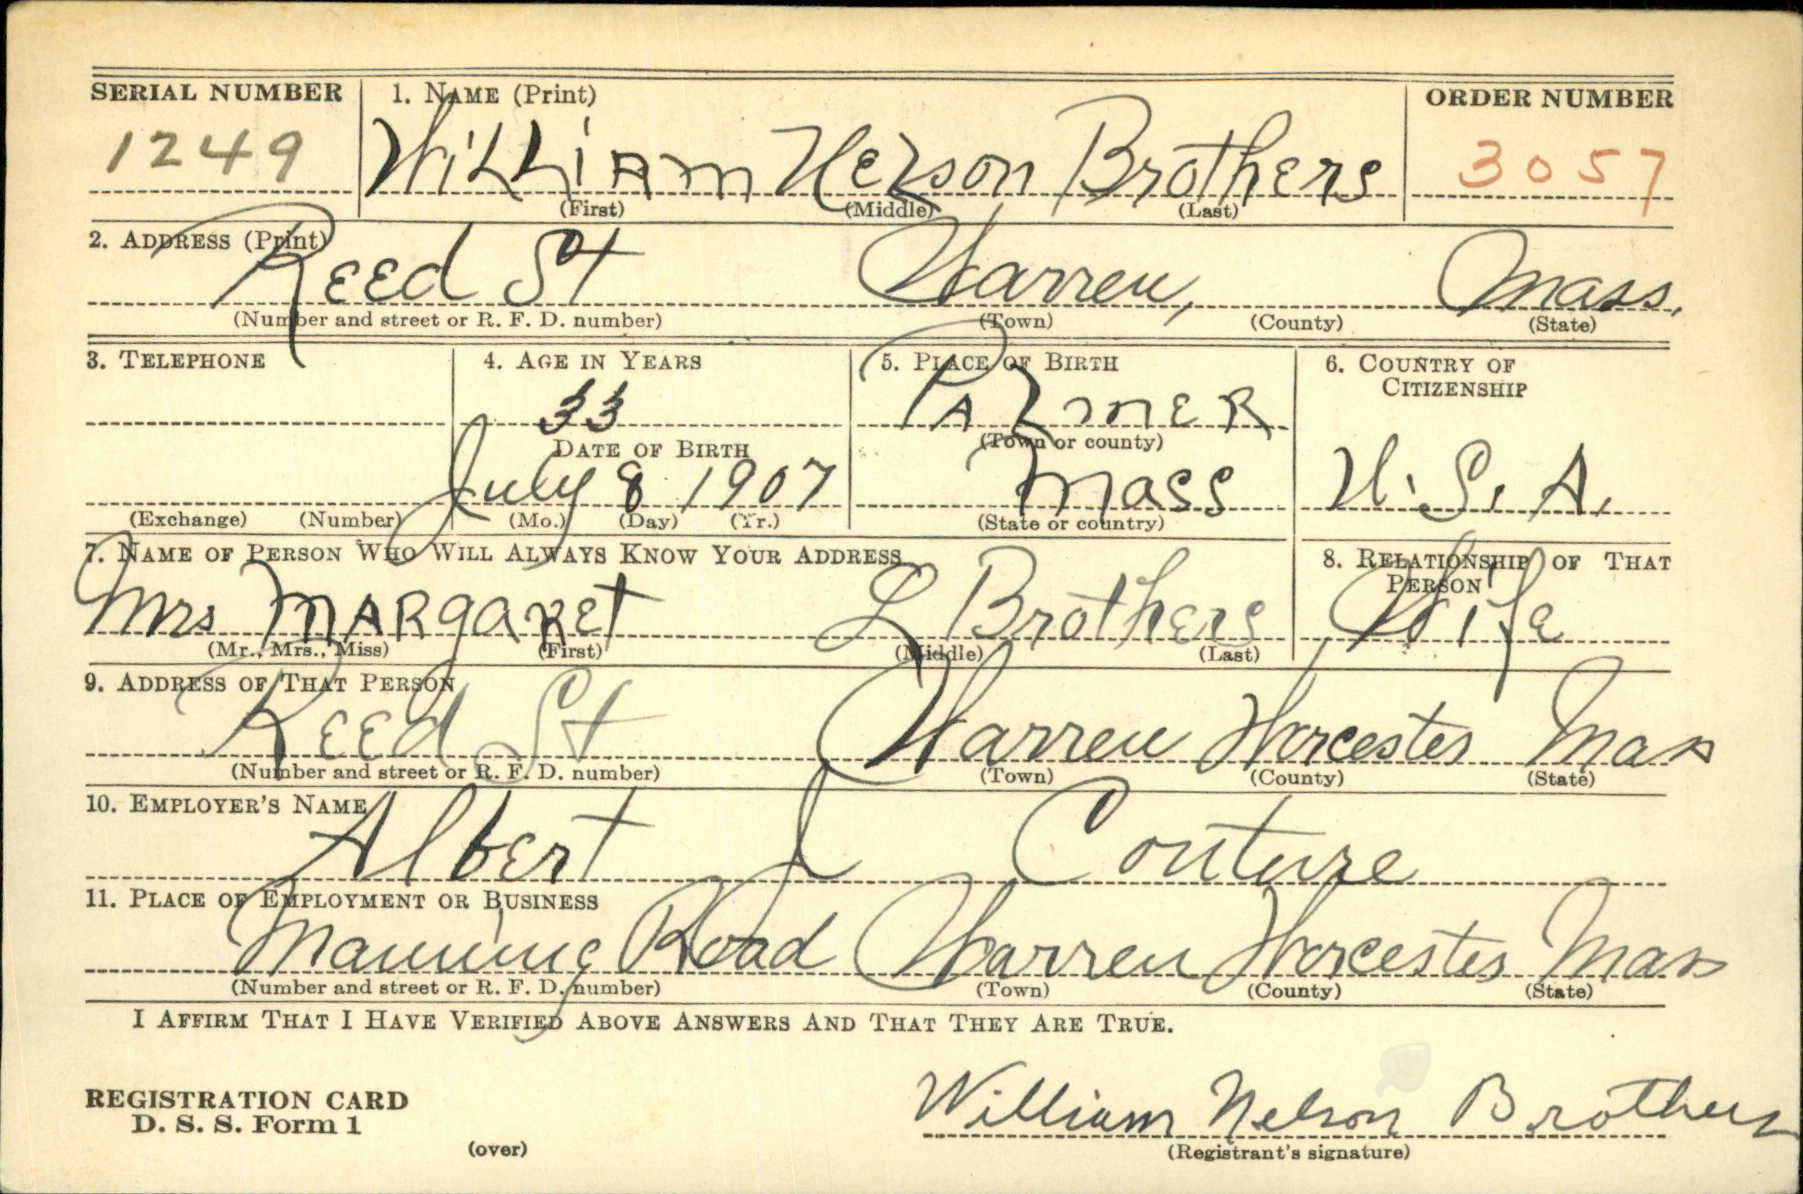 SERIAL NUMBER 1. NAME (Print) ORDER NUMBER
1249 William Nelson Brothers 3057
(First) (Middle) (Last)
2. ADDRESS (Print)
Reed St Warren, Mass.
(Number and street or R. F. D. number) (Town) (County) (State)
3. TELEPHONE 4. AGE IN YEARS 5. PLACE OF BIRTH 6. COUNTRY OF CITIZENSHIP
33 Palmer
DATE OF BIRTH (Town or county)
July 8 1907 Mass U.S.A.
(Exchange) (Number) (Mo.) (Day) (Yr.) (State or country)
7. NAME OF PERSON WHO WILL ALWAYS KNOW YOUR ADDRESS 8. RELATIONSHIP OF THAT PERSON
Mrs Margaret L Brothers Wife
(Mr., Mrs., Miss) (First) (Middle) (Last)
9. ADDRESS OF THAT PERSON
Reed St Warren Worcester Mass
(Number and street or R. F. D. number) (Town) (County) (State)
10. EMPLOYER'S NAME
Albert J Couture
11. PLACE OF EMPLOYMENT OR BUSINESS
Manning Road Warren Worcester Mass
(Number and street or R. F. D. number) (Town) (County) (State)
I AFFIRM THAT I HAVE VERIFIED ABOVE ANSWERS AND THAT THEY ARE TRUE.
REGISTRATION CARD
D. S. S. Form 1
William Nelson Brothers
(over) (Registrant's signature)